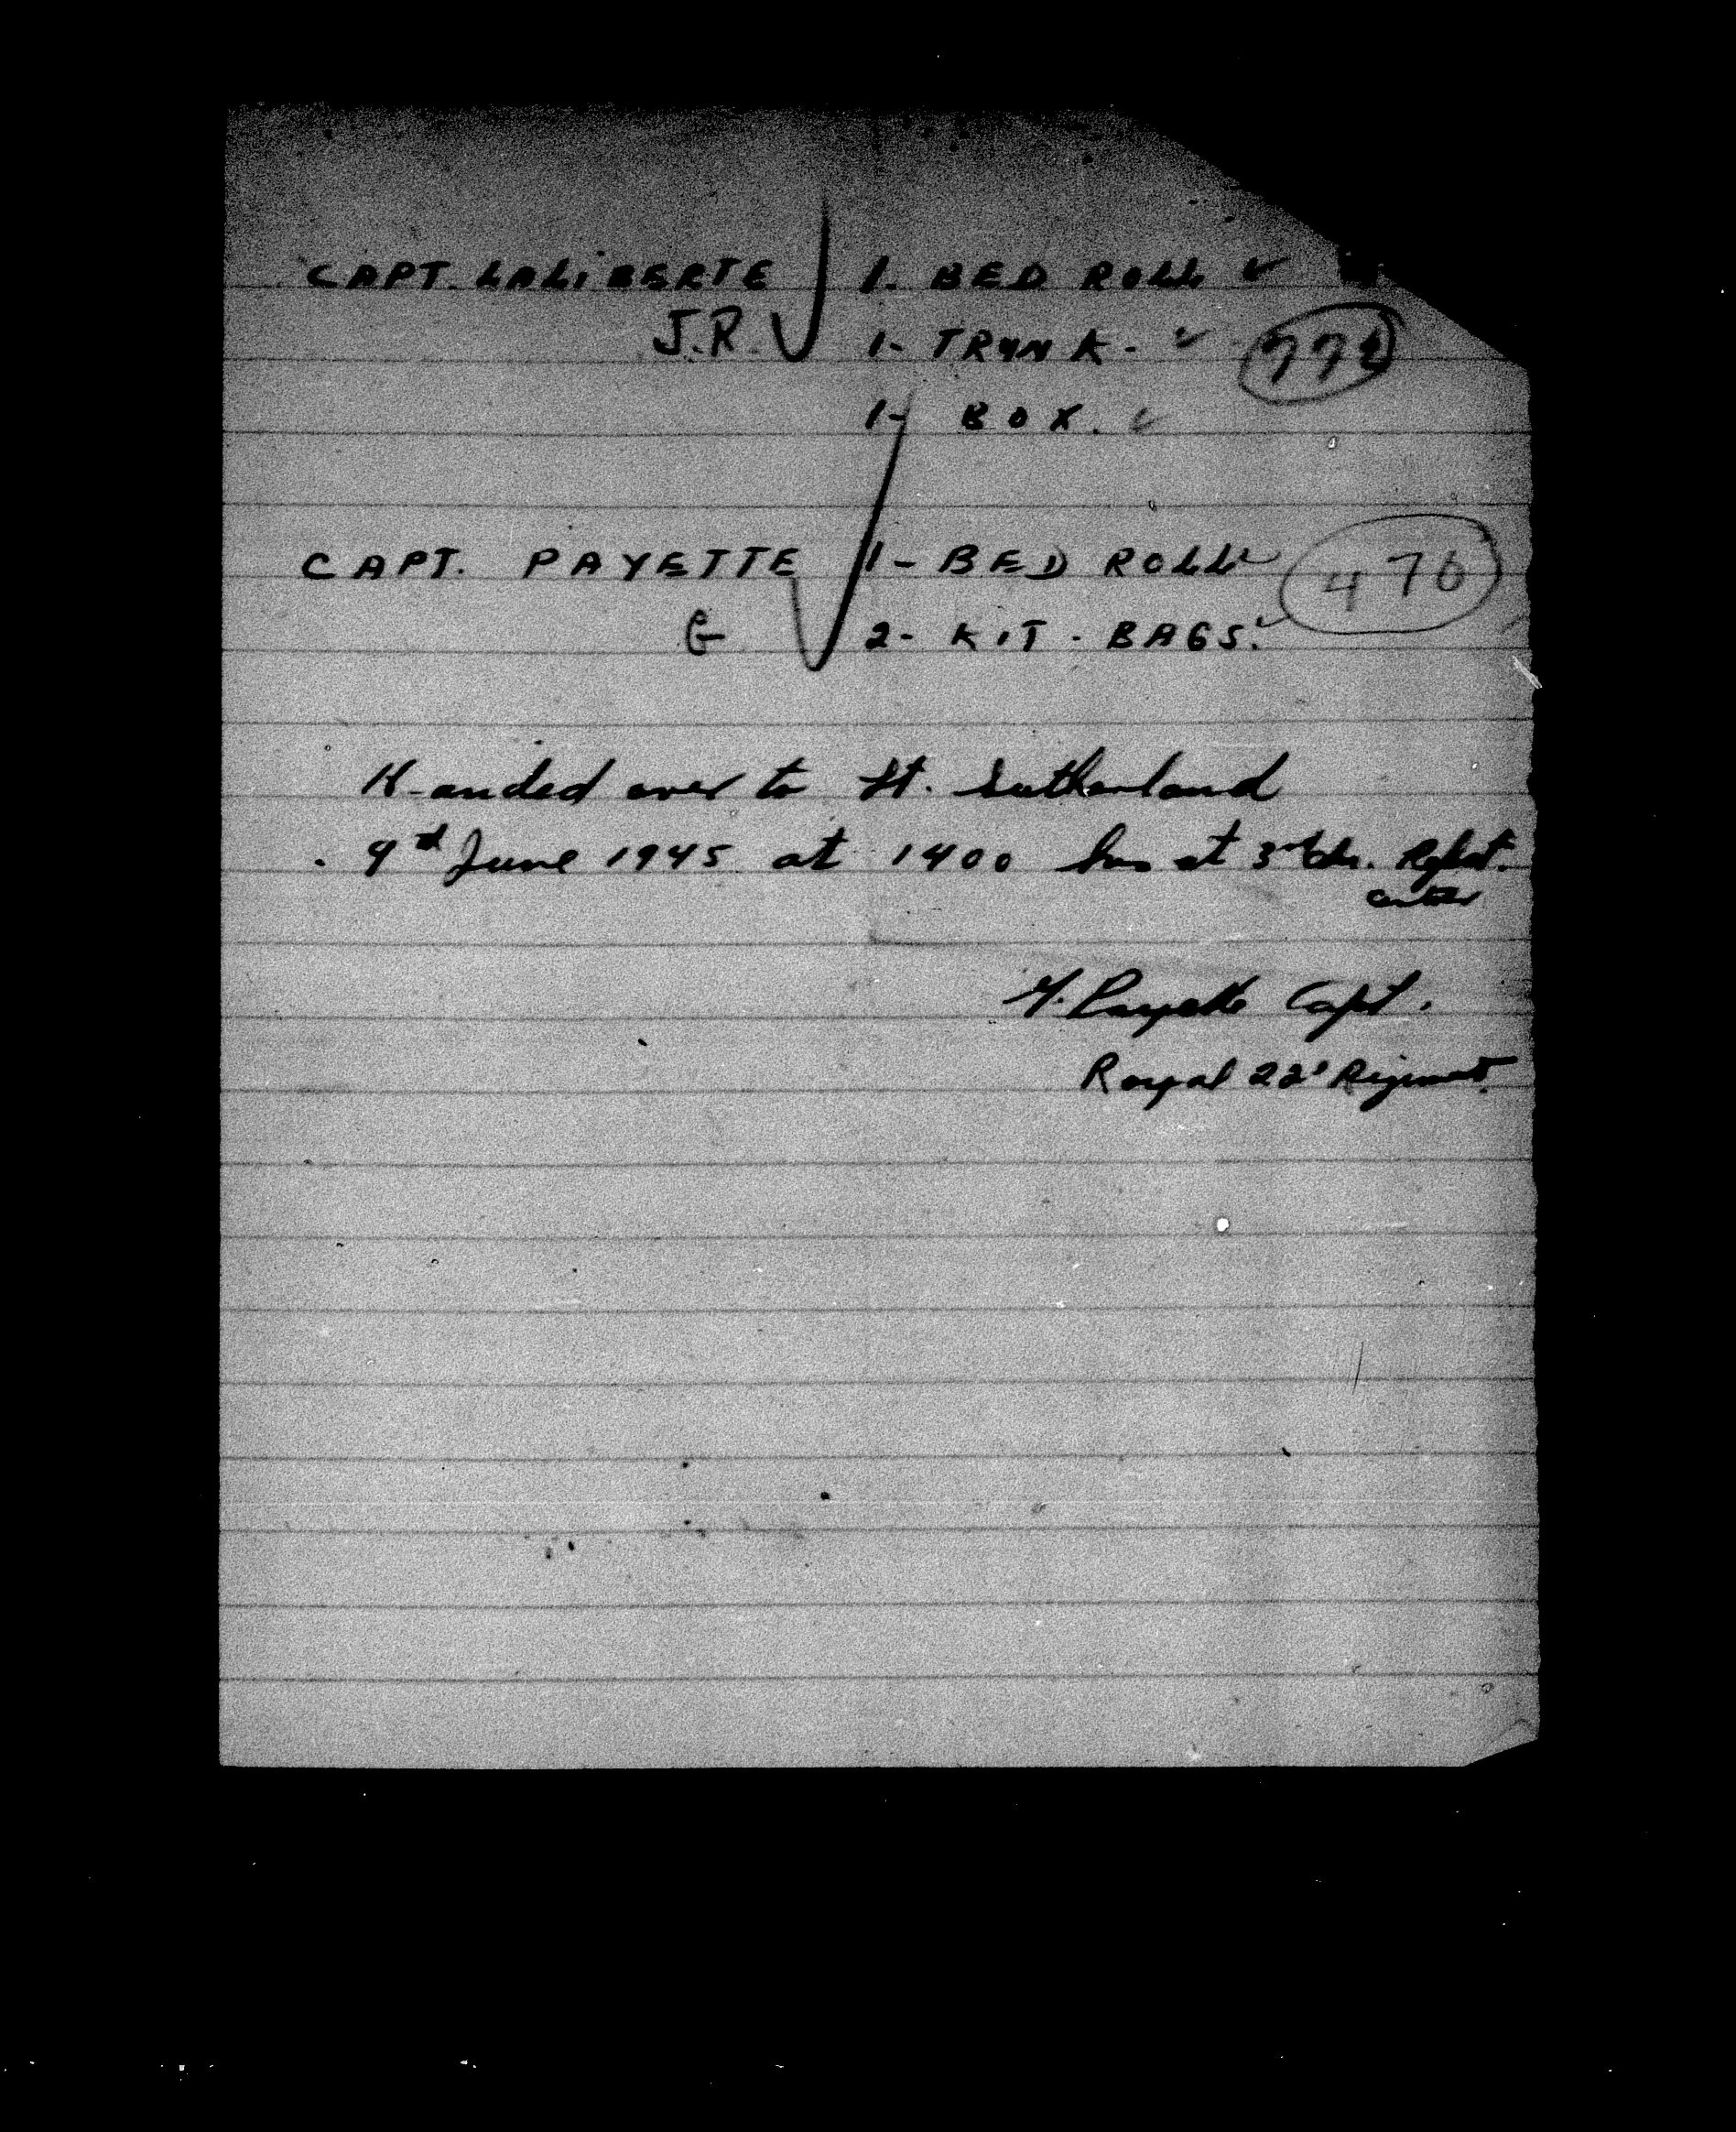 CAPT. LALIBERTE 1. BED ROLL
J.R. 1- TRUNK.
1- BOX.
CAPT. PAYETTE 1- BED ROLL 476
G 2- KIT-BAGS.
Handed over to Lt. Sutherland
9th June 1945 at 1400 hrs at 3rd
center
G. Payette Capt.
Royal 22e Regiment